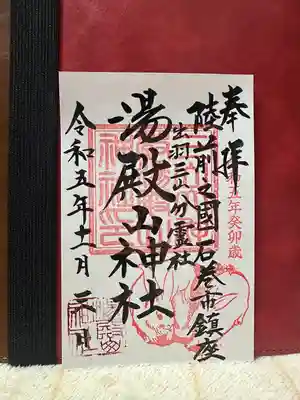 奉拝
陸前之國石巻市鎮座
出羽三山分霊社
湯殿山神社
令和五年十一月三日
五年癸卯歳